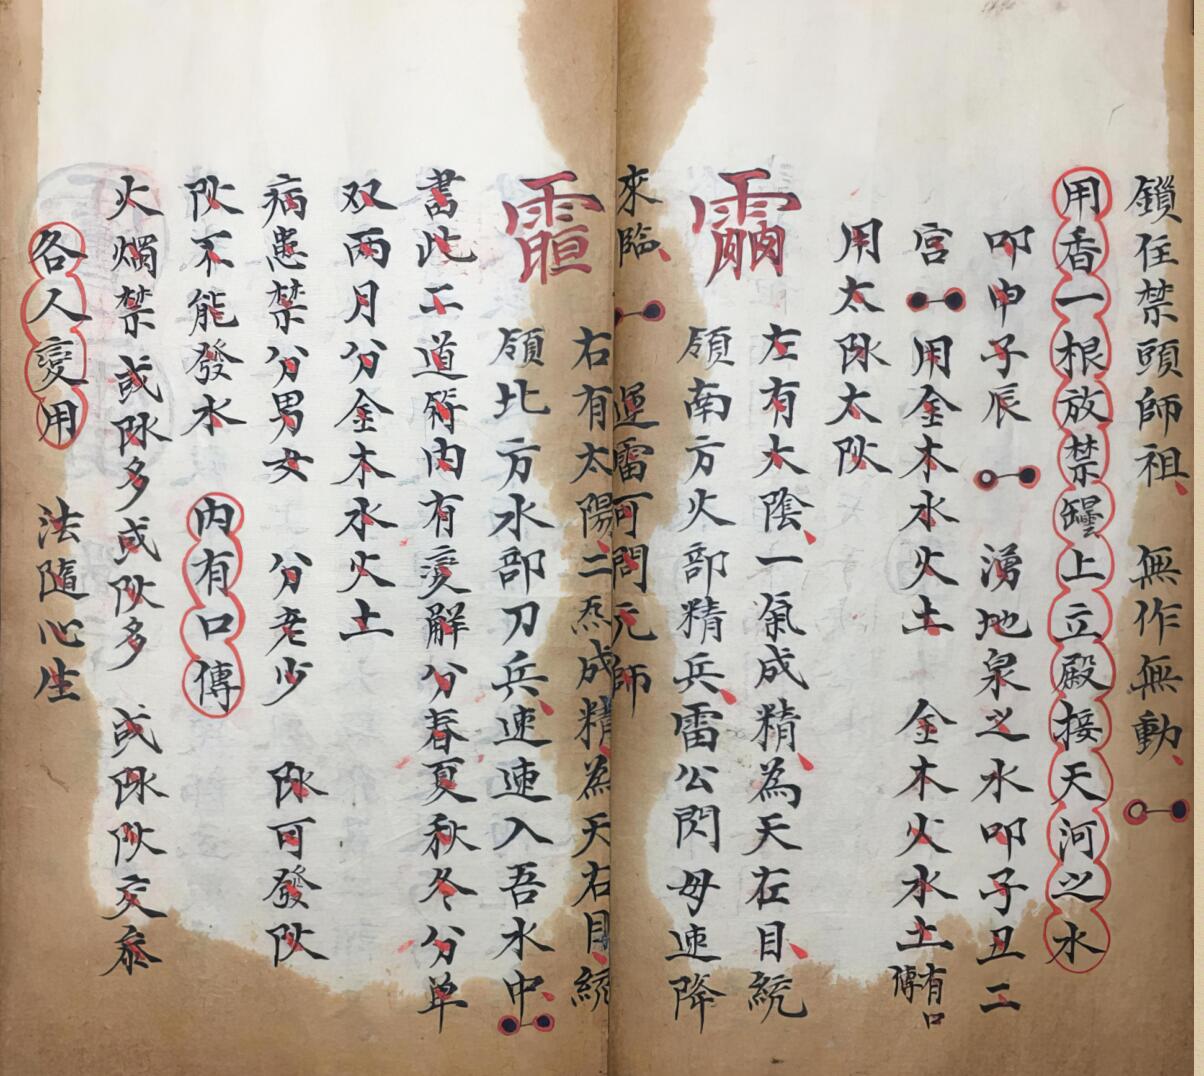 鎖任禁頭師祖、無作無動、
用香一根放禁罐上立殿接天河之水
叩申子辰 湧地泉之水叩子丑二
宮 用金木水火土 金木火水土有口傳
用太𨸝太𨸖
左有太陰、一氣成精、為天在目、統
領南方火部精兵、雷公閃母速降
來臨、 運雷可問元師
右有太陽、二炁成精、為天右目、統
領北方水部刀兵、速速入吾水中、
書此二道符內有变解分春夏秋冬分单
双两月分金木水火土
病患禁分男女 分老少 可發
不能發水 內有口傳
火燭禁或多或多 或交泰
各人变用 法隨心生